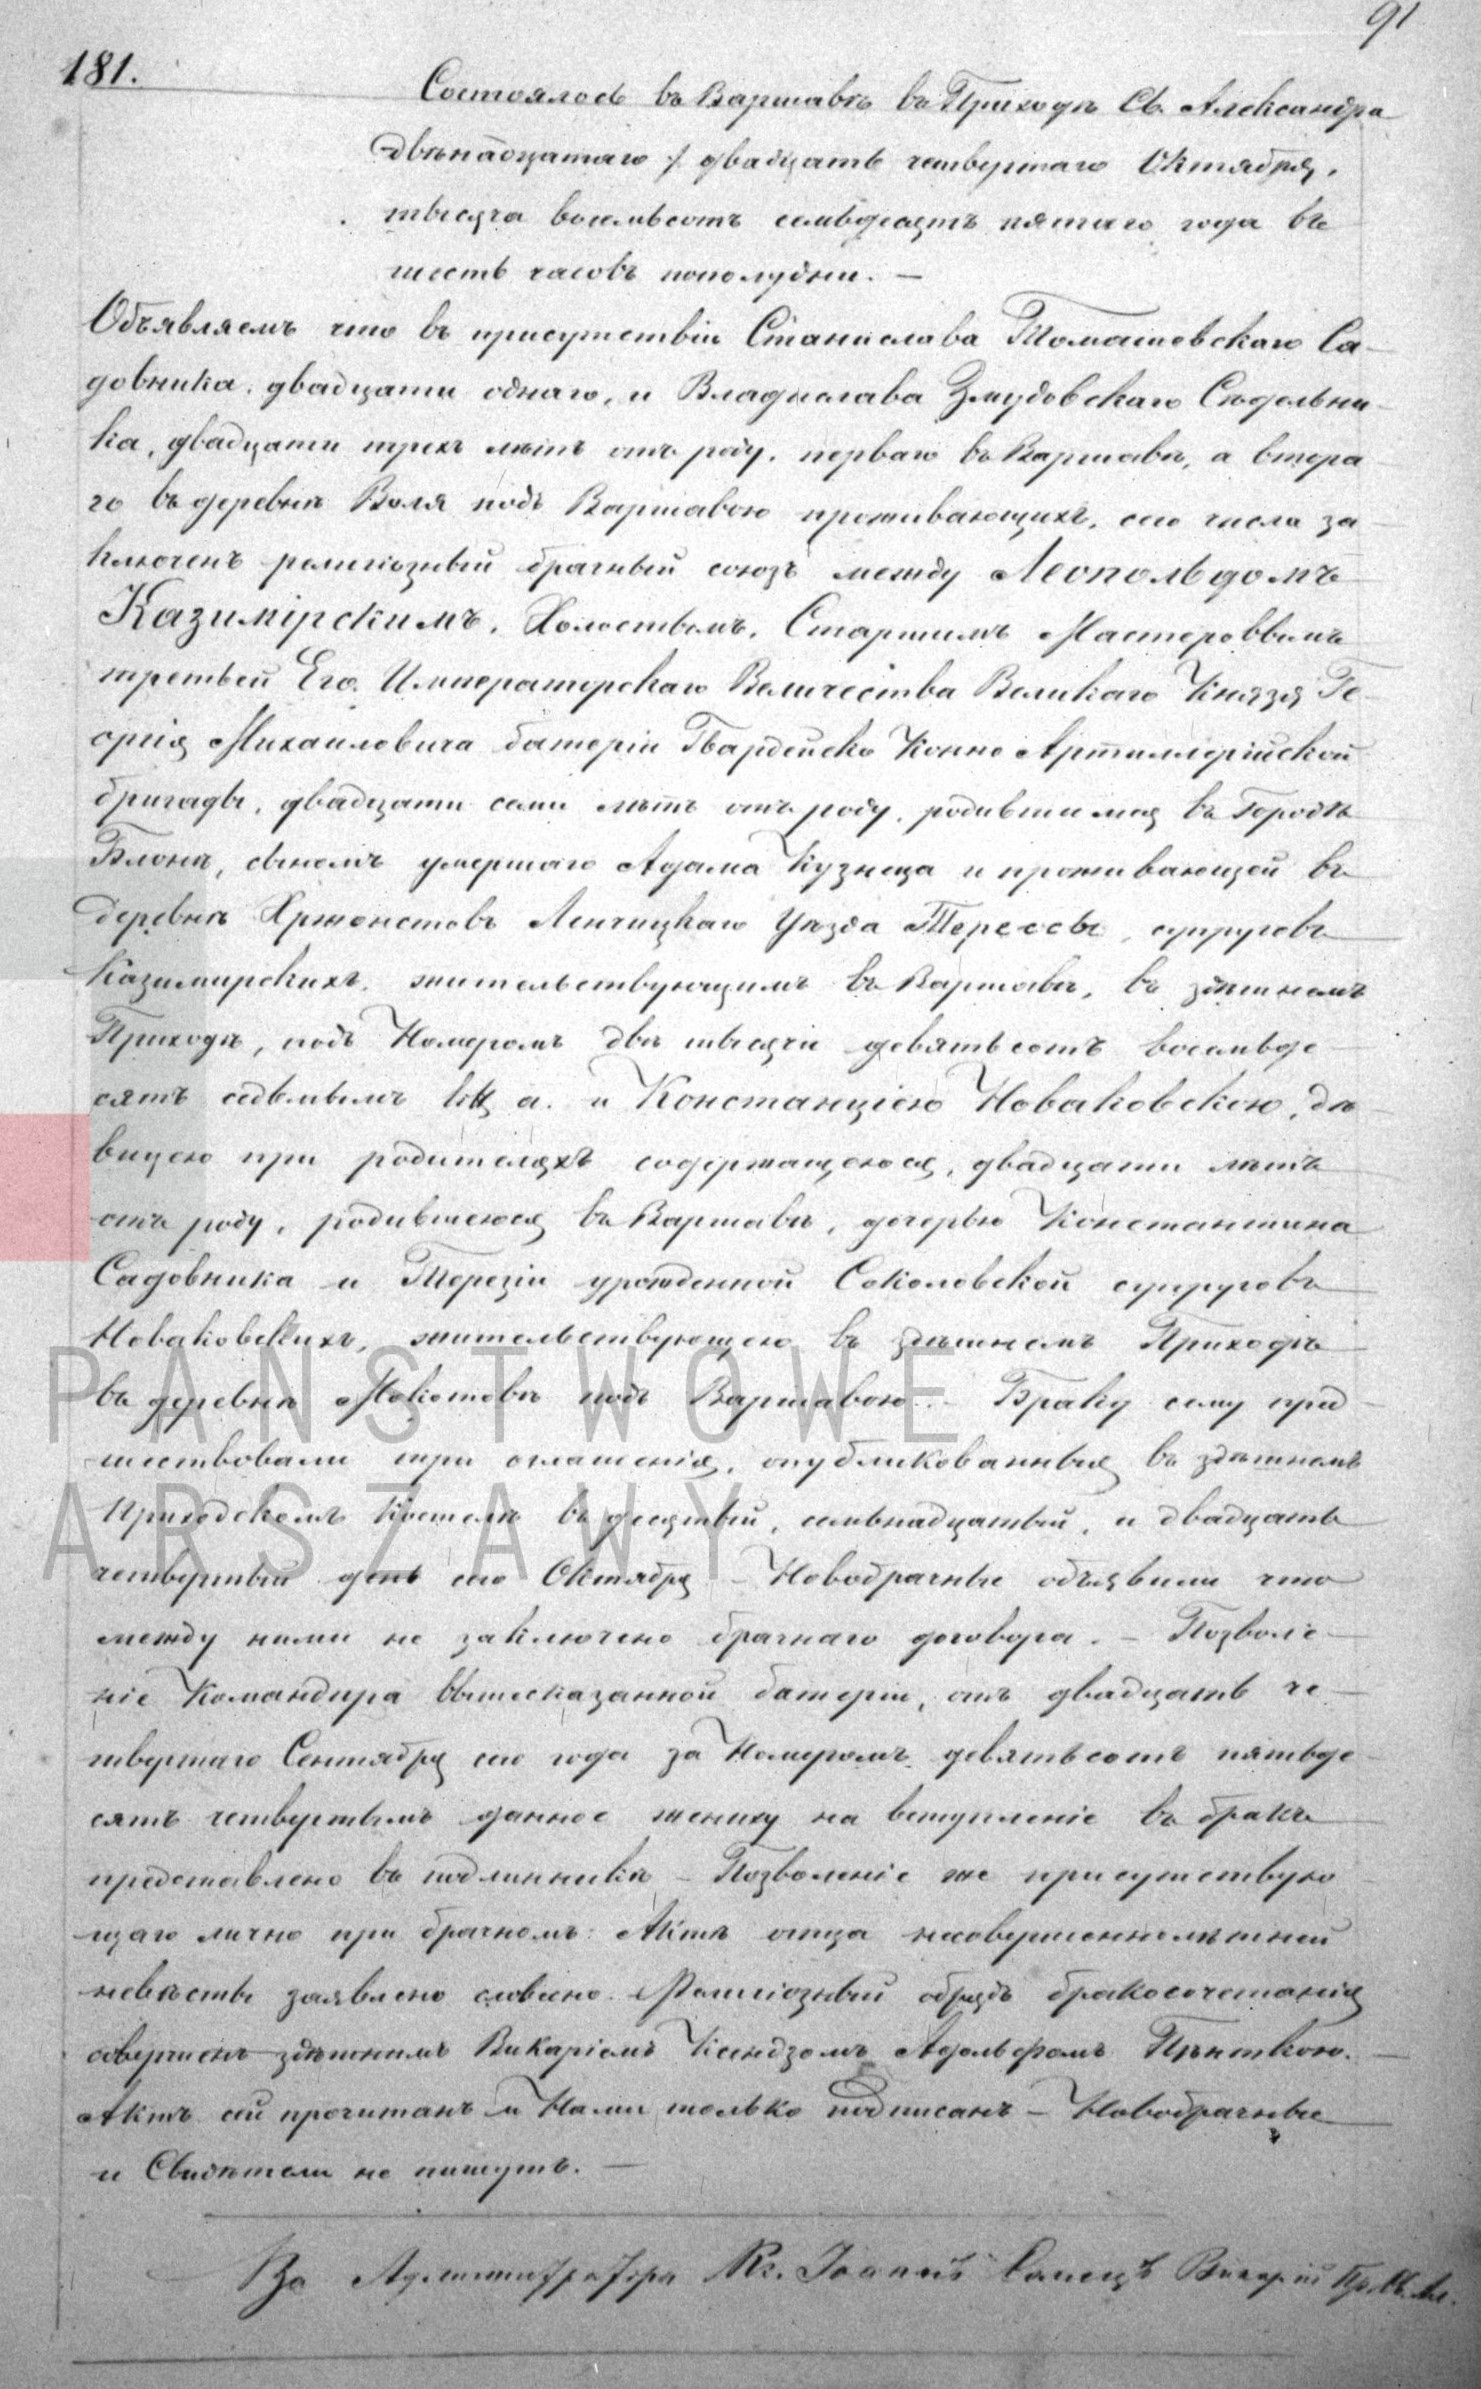 91
181.
Состоялось въ Варшавѣ въ Приходѣ Св. Александра
двѣнадцатаго / двадцать четвертаго Октября,
тысяча восемьсотъ семьдесятъ пятаго года въ
шесть часовъ пополудни. —
Объявляемъ что въ присутствіи Станислава Томашевскаго Са-
довника, двадцати однаго, и Владислава Змудовскаго Сѣдельни-
ка, двадцати трехъ лѣтъ отъ роду, перваго въ Варшавѣ, а втора-
го въ деревнѣ Воля подъ Варшавою проживающихъ, сего числа за-
ключенъ религіозный брачный союзъ между Леопольдомъ
Казимірскимъ, Холостымъ, Старшимъ Мастеровымъ
третьей Его Императорскаго Величества Великаго Князя Ге-
оргія Михаиловича батеріи Гвардейско Конно Артиллерійской
бригады, двадцати семи лѣтъ отъ роду, родившимся въ Городѣ
Блонѣ, сыномъ умершаго Адама Кузнеца и проживающей въ
деревнѣ Хржонстовъ Ленчицкаго Уѣзда Терессы, супруговъ
Казимирскихъ, жительствующимъ въ Варшавѣ, въ здѣшнемъ
Приходѣ, подъ Номеромъ двѣ тысячи девятьсотъ восемьде-
сятъ седьмымъ а. и Констанціею Новаковскою, дѣ-
вицею при родителяхъ содержащеюся, двадцати лѣтъ
отъ роду, родившеюся въ Варшавѣ, дочерью Константина
Садовника и Терезіи урожденной Соколовской супруговъ
Новаковскихъ, жительствующею въ здѣшнемъ Приходѣ
въ деревнѣ Мокотовѣ подъ Варшавою. — Браку сему пред-
шествовали три оглашенія, опубликованныя въ здѣшнемъ
Приходскомъ Костелѣ въ десятый, семьнадцатый, и двадцать
четвертый день сего Октября — Новобрачные объявили что
между ними не заключено брачнаго договора. — Позволе-
ніе Командира вышесказанной батеріи, отъ двадцать че-
твертаго Сентября сего года за Номеромъ девятьсотъ пятьде-
сятъ четвертымъ данное жениху на вступленіе въ бракъ
представлено въ подлинникѣ — Позволеніе же присутствую-
щаго лично при брачномъ Актѣ отца несовершеннолѣтней
невѣсты заявлено словесно. Религіозный обрядъ бракосочетанія
совершенъ здѣшнимъ Викаріемъ Ксендзомъ Адольфомъ Пѣнткою.
Актъ сей прочитанъ и Нами только подписанъ — Новобрачные
и Свидѣтели не пишутъ. —
За Администратора Кс. Іоаннъ Викарій
PAŃSTWOWE
ARSZAWY